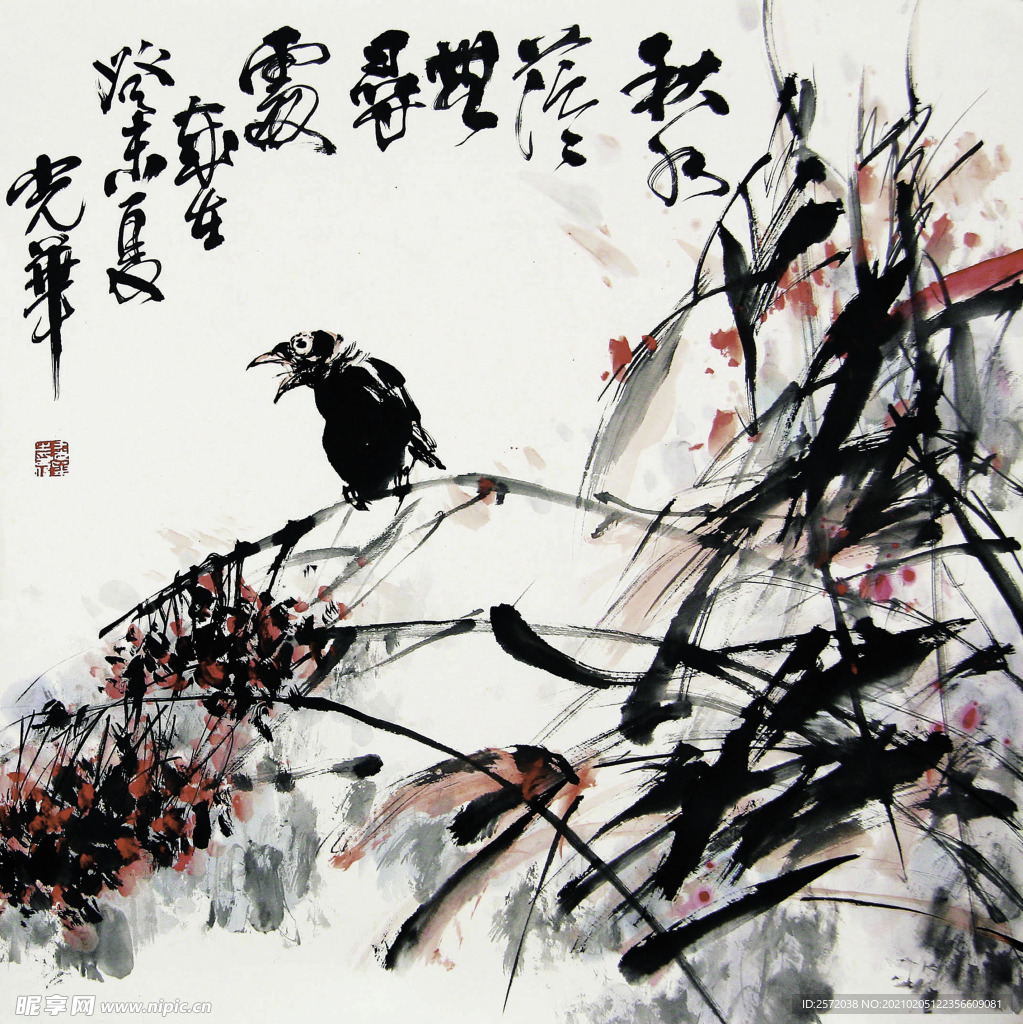 秋水
茫々
無
尋
處
歲在
癸未夏
光華
昵享网 www.nipic.cn
ID:2572038 NO:20210205122356609081